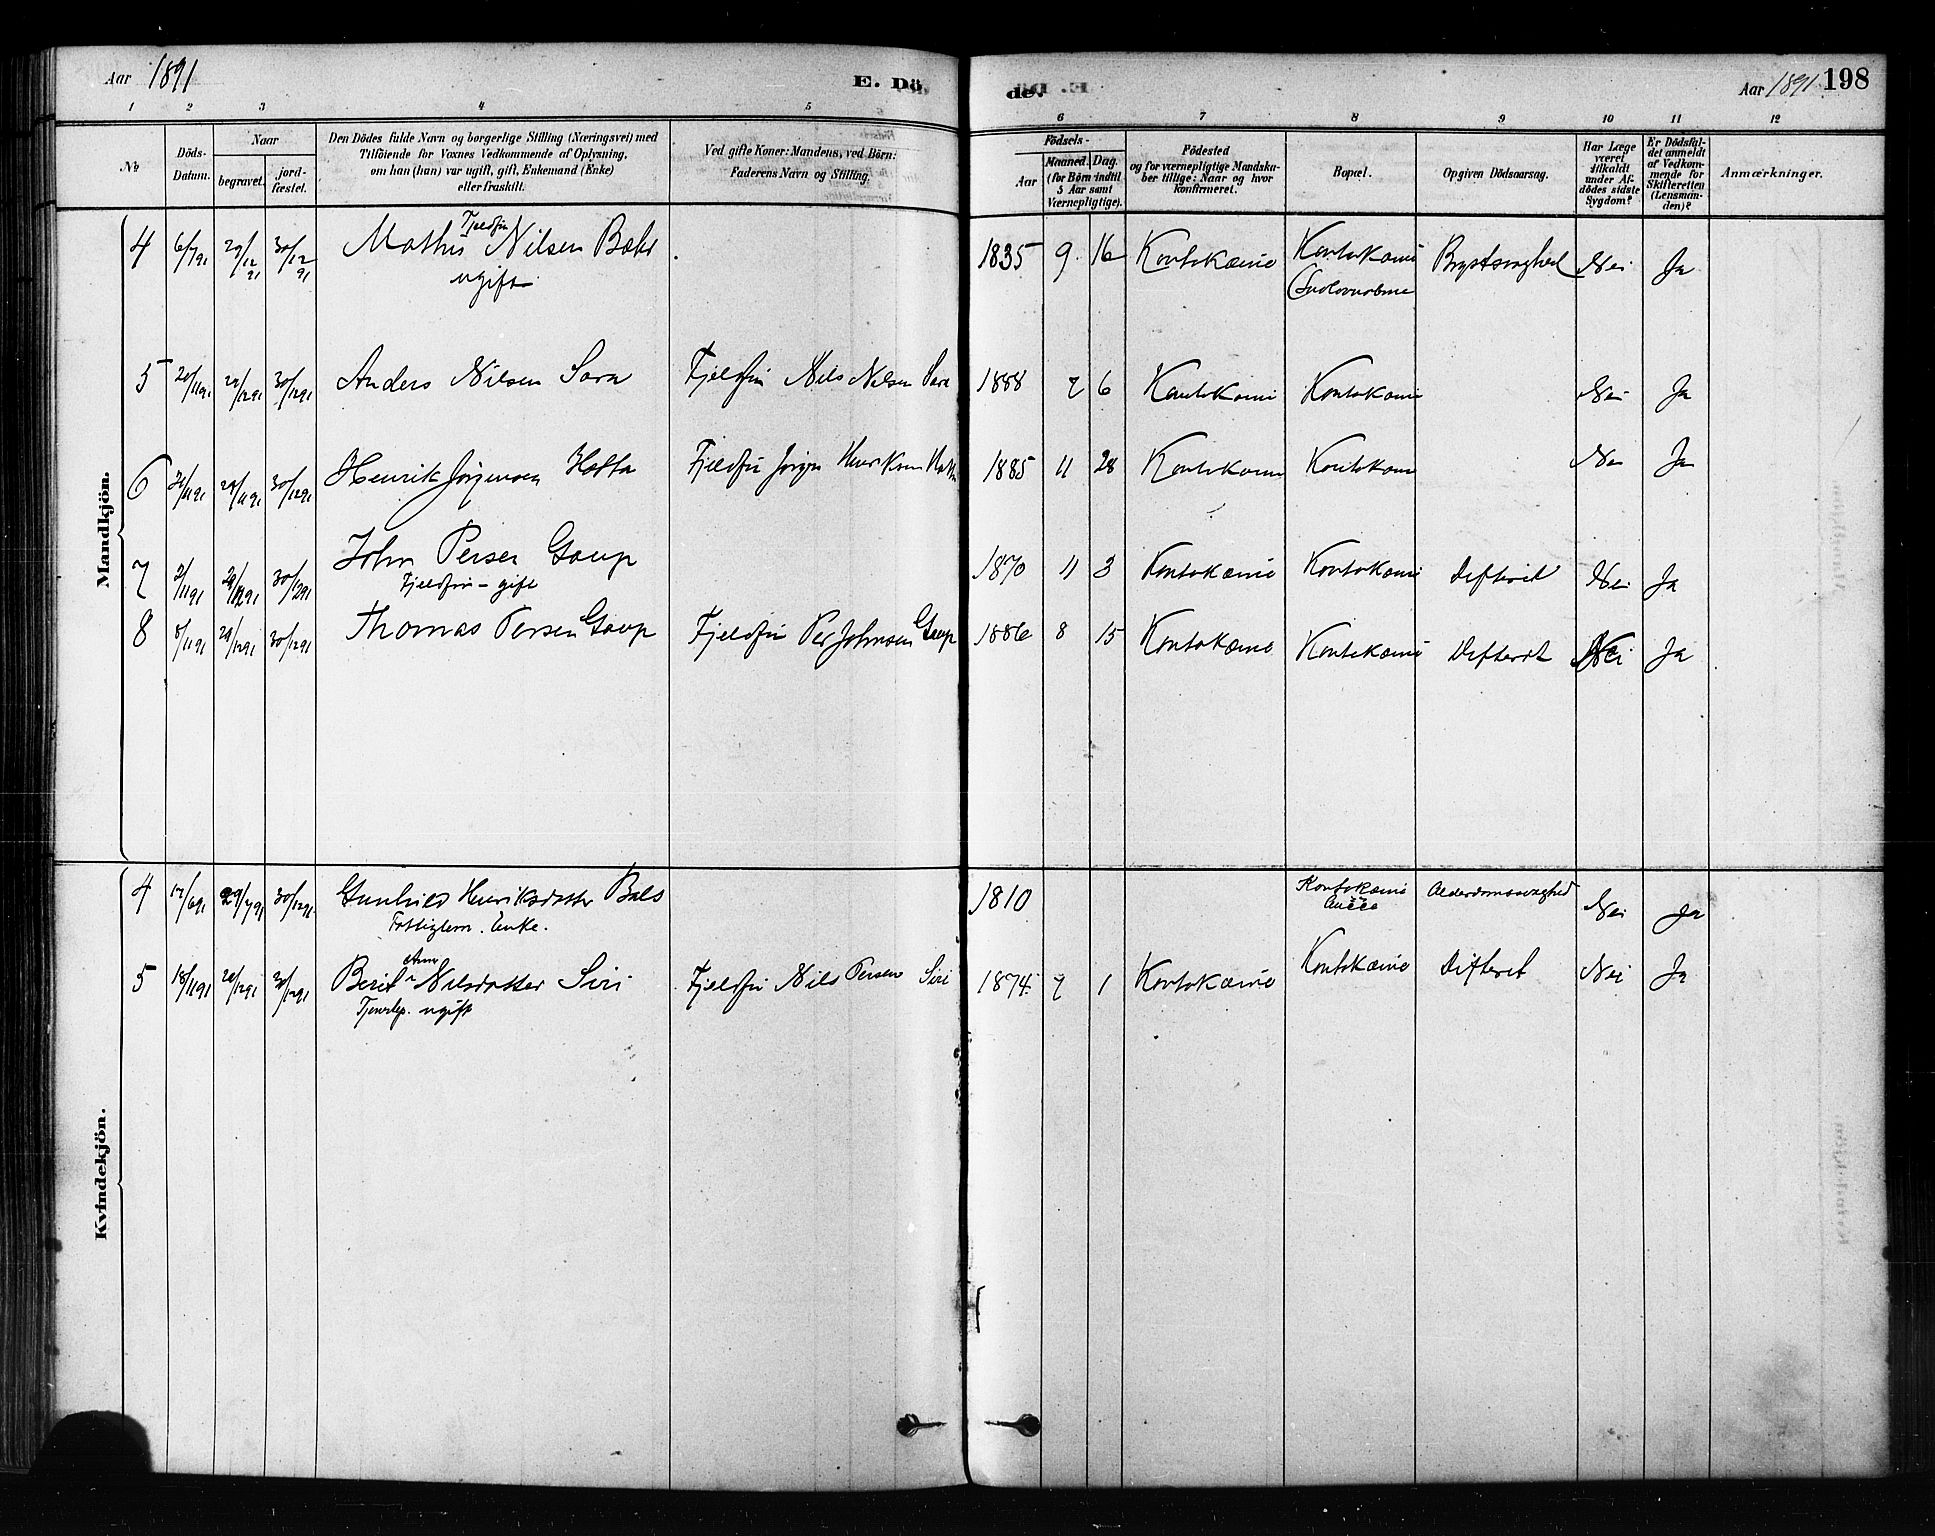 Aar 1891 E. Dö-
de. Aar 1891 198
1 2 3 4 5 6 7 8 9 10 11 12
No
Döds-
Datum.
Naar
begravet.
jord-
fæstet.
Den Dödes fulde Navn og borgerlige Stilling (Næringsvei) med
Tilföiende for Voxnes Vedkommende af Oplysning,
om han (hun) var ugift, gift, Enkemand (Enke)
eller fraskilt.
Ved gifte Koner: Mandens, ved Börn:
Faderens Navn og Stilling.
Födsels-
Aar
Maaned. Dag.
(for Börn indtil
5 Aar samt
Værnepligtige).
Födested
og for værnepligtige Mandska-
ber tillige: Naar og hvor
konfirmeret.
Bopæl.
Opgiven Dödsaarsag.
Har Læge
været
tilkaldt
under Af-
dödes sidste
Sygdom?
Er Dödsfal-
det anmeldt
af Vedkom-
mende for
Skifteretten
(Lensman-
den)?
Anmærkninger.
Mandkjön.
4 6/7 91 29/12 91 30/12 91 Mathis Nilsen Bæhr 1835 9 16 Kautokæino Kautokæino Brystsvaghed Nei Ja
Fjeldfin
ugift
5 20/11 91 29/12 91 30/12 91 Anders Nilsen Sara Fjeldfin Nils Nilsen Sara 1888 7 6 Kautokæino Kautokæino Nei Ja
6 29/12 91 30/12 91 Henrik Jørgensen Hætta Fjeldfin Jørgen Henriksen Hætta 1885 11 28 Kautokæino Kautokæino Nei Ja
7 2/11 91 29/12 91 30/12 91 John Persen Gaup 1870 11 3 Kautokæino Kautokæino Difterit Nei Ja
Fjeldfin - gift
8 8/11 91 29/12 91 30/12 91 Thomas Persen Gaup Fjeldfin Per Johnsen Gaup 1886 8 15 Kautokæino Kautokæino Difterit Nei Ja
Kvindekjön.
4 17/6 91 29/7 91 30/12 91 Gunhild Henriksdatter Bals 1810 Kautokæino Alderdomssvaghed Nei Ja
Fattiglem. Enke.
5 18/11 91 29/12 91 30/12 91 Berit Anne Nilsdatter Siri Fjeldfin Nils Persen Siri 1874 7 1 Kautokæino Kautokæino Difterit Nei Ja
ugift